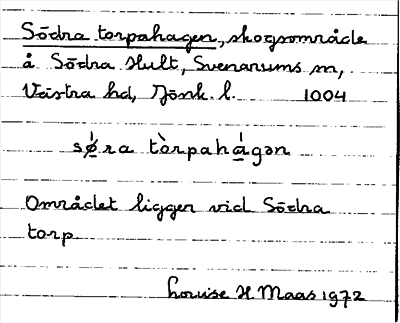 Södra torpahagen, skogsområde
å Södra Hult, Svenarums sn,
Västra hd, Jönk. l. 1004
sø̀ra tòrpahágən
Området ligger vid Södra
torp
Louise H. Maas 1972